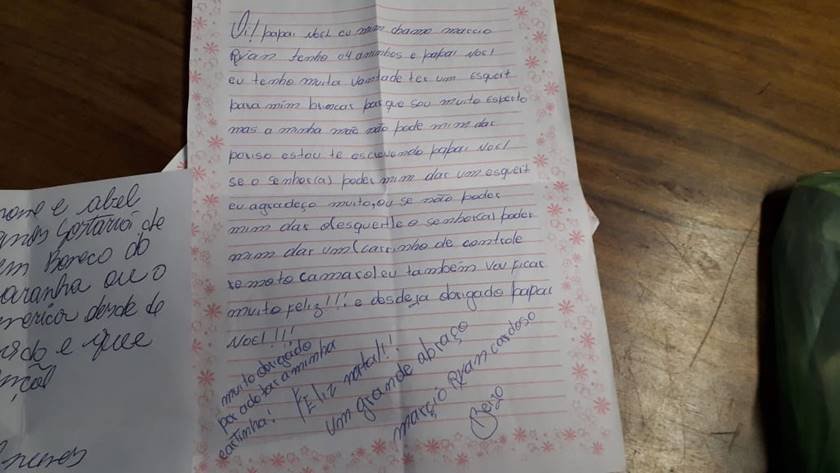 Oi! papai Noel eu mim chamo marcio
Ryan tenho 04 aninhos e papai Noel
eu tenho muita vontade ter um esqueit
para mim brincar porque sou muito esperto
mas a minha mãe não pode mim dar
pariso estou te escrevendo papai Noel
se o senhor(a) poder mim dar um esqueit
eu agradeço muito, ou se não poder
mim dar desqueite o senhor(a) poder
mim dar um carrinho de controle
remoto camarol eu também vou ficar
muito feliz!!! e desdeja obrigado papai
Noel!!!
muito obrigado
por adotar a minha
cartinha!
Feliz natal!!
um grande abraço
marcio Ryan cardoso
Beijo
nome e abel
anos gostaria de
um Boneco do
aranha ou o
merica desde de
e que